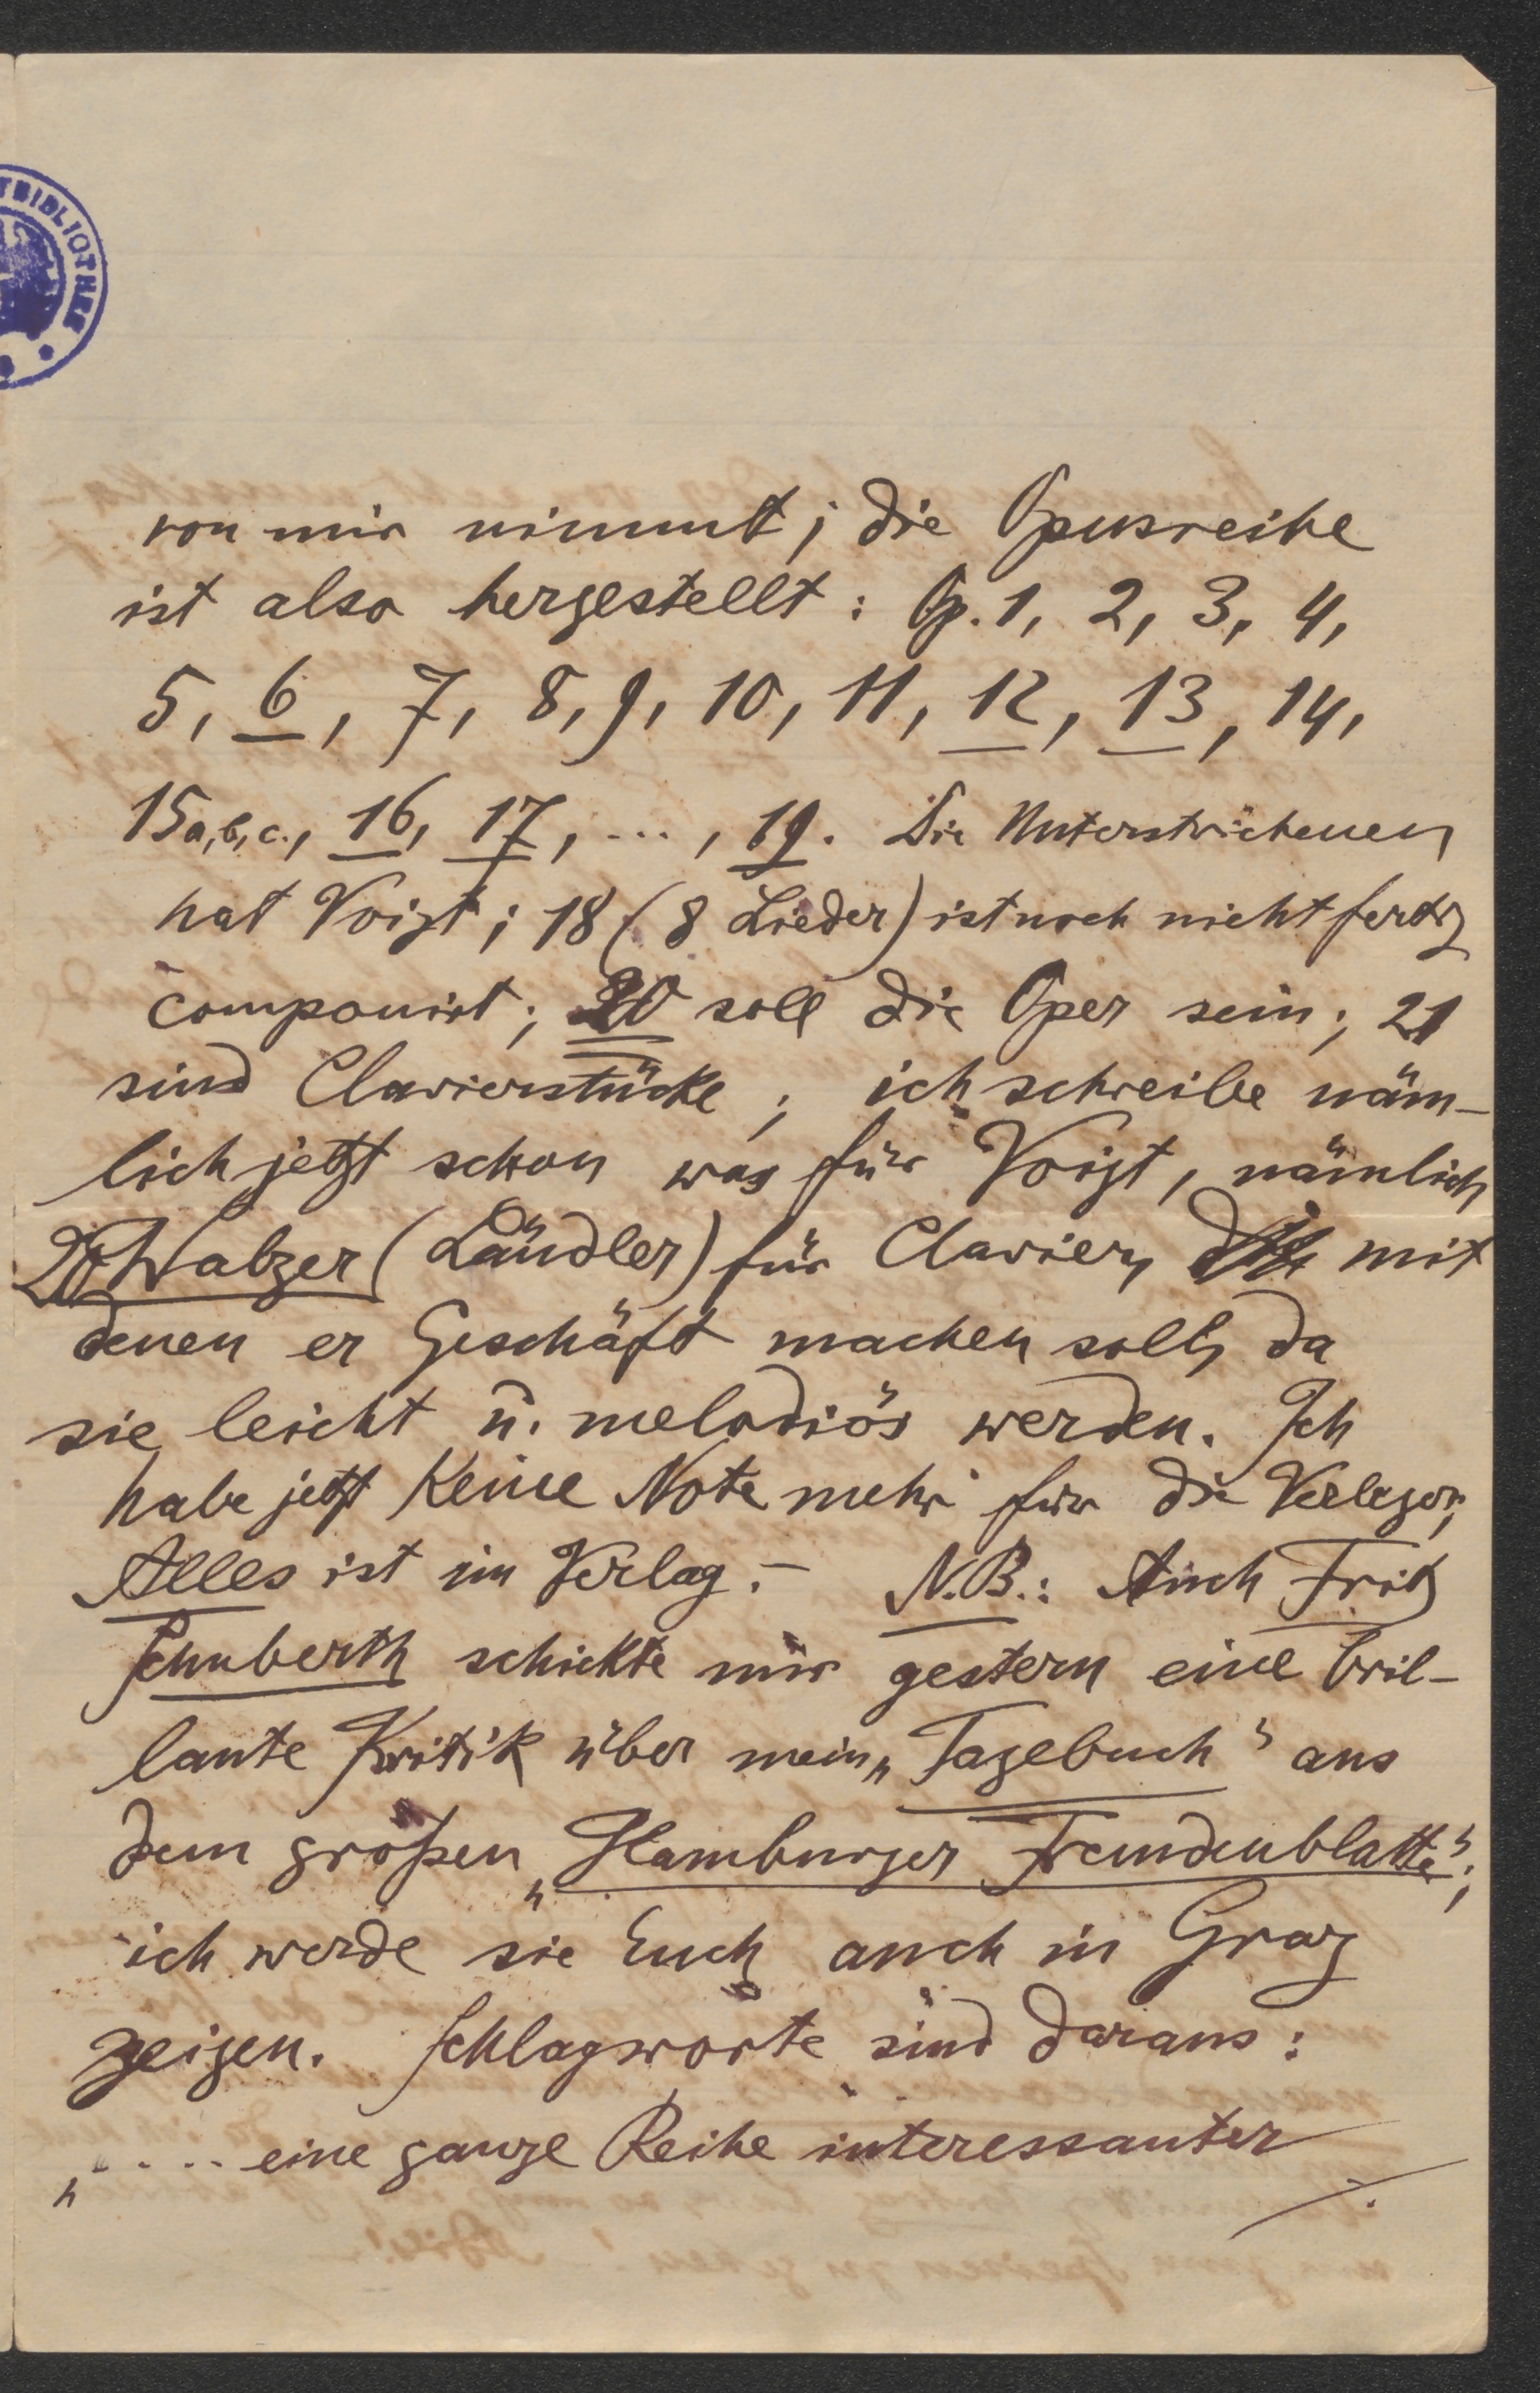 TBIBLIOTHEK
von mir nimmt; die Opusreihe
ist also hergestellt: Op. 1, 2, 3, 4,
5, 6, 7, 8, 9, 10, 11, 12, 13, 14,
15a,b,c., 16, 17, ..., 19. Die Unterstrichenen
hat Voigt; 18 (8 Lieder) ist noch nicht fertig
componirt; 20 soll die Oper sein; 21
sind Clavierstücke; ich schreibe näm-
lich jetzt schon was für Voigt, nämlich
Walzer (Ländler) für Clavier, mit
denen er Geschäft machen soll, da
sie leicht u. melodiös werden. Ich
habe jetzt keine Note mehr für die Verleger,
Alles ist im Verlag. – N.B.: Auch Fritz
Schuberth schickte mir gestern eine bril-
lante Kritik über mein „Tagebuch" aus
dem großen „Hamburger Fremdenblatte";
ich werde sie Euch auch in Graz
zeigen. Schlagworte sind daraus:
„.... eine ganze Reihe interessanter